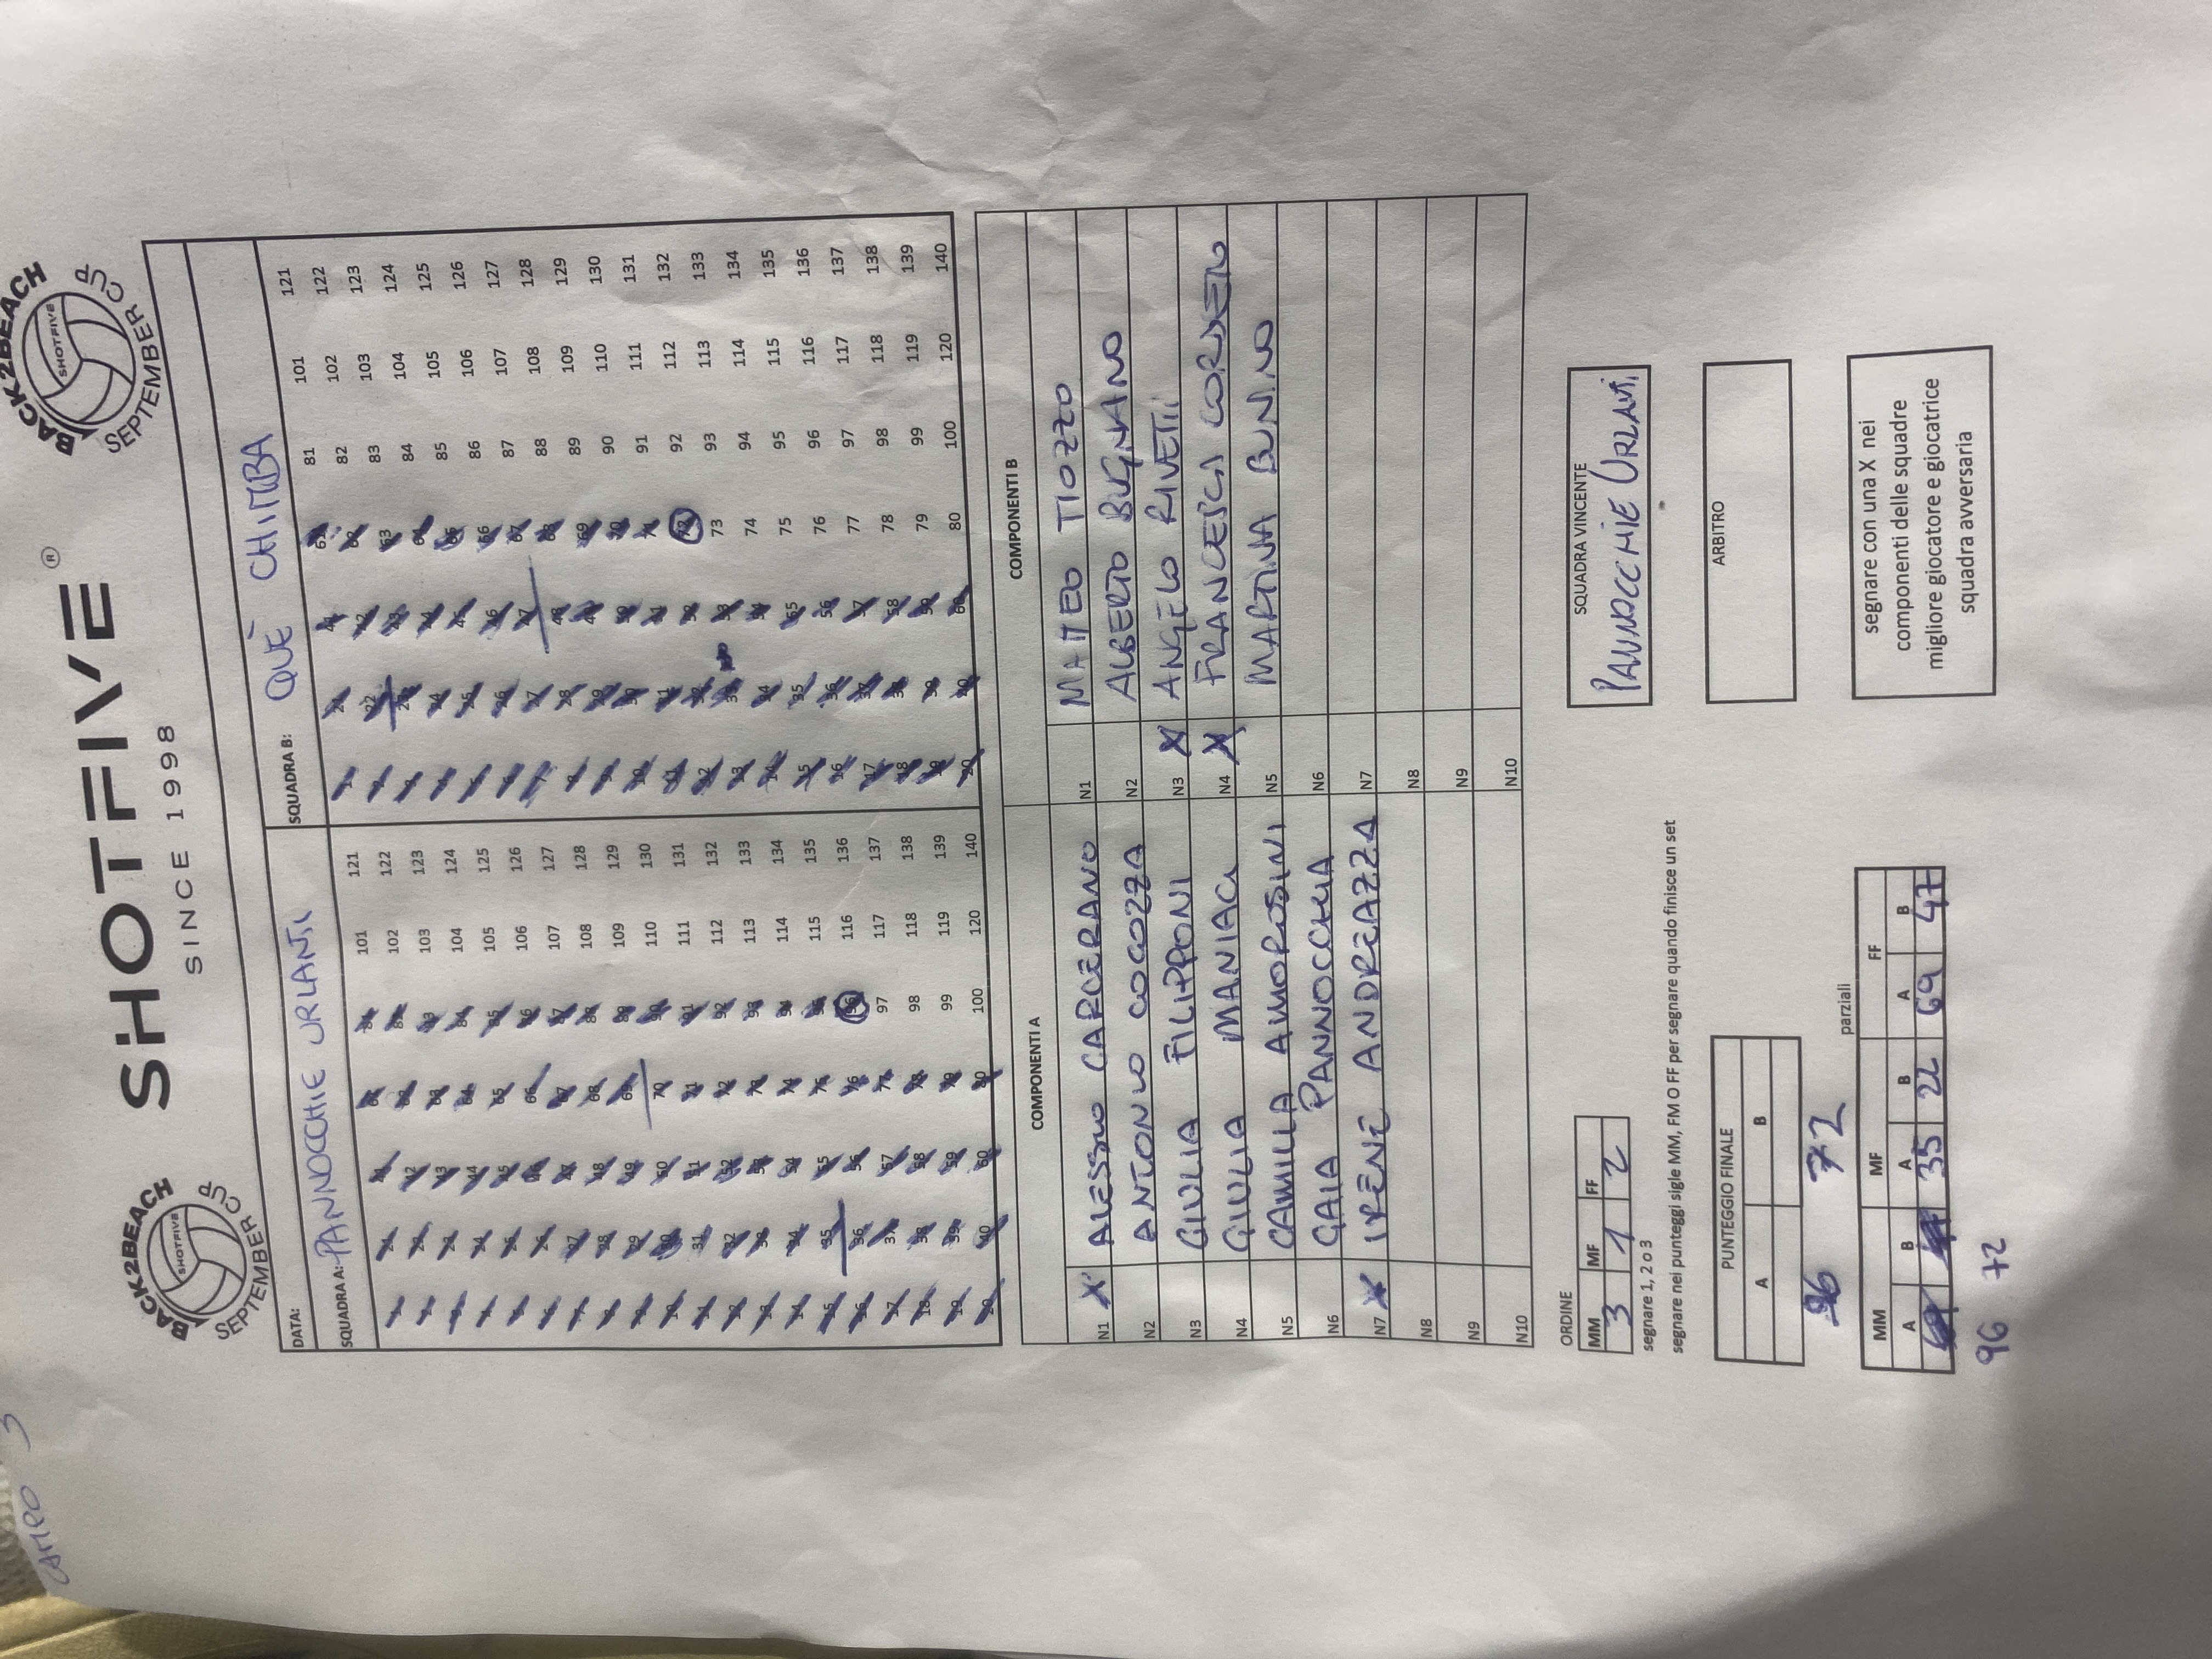 CAMPO 3
BACK2BEACH
SHOTFIVE
SEPTEMBER CUP
SHOTFIVE®
SINCE 1998
BACK2BEACH
SHOTFIVE
SEPTEMBER CUP
DATA:
SQUADRA A: PANNOCCHIE URLANTI
SQUADRA B: QUÉ CHIMBA
1 21 41 61 81 101 121
2 22 42 62 82 102 122
3 23 43 63 83 103 123
4 24 44 64 84 104 124
5 25 45 65 85 105 125
6 26 46 66 86 106 126
7 27 47 67 87 107 127
8 28 48 68 88 108 128
9 29 49 69 89 109 129
10 30 50 70 90 110 130
11 31 51 71 91 111 131
12 32 52 72 92 112 132
13 33 53 73 93 113 133
14 34 54 74 94 114 134
15 35 55 75 95 115 135
16 36 56 76 96 116 136
17 37 57 77 97 117 137
18 38 58 78 98 118 138
19 39 59 79 99 119 139
20 40 60 80 100 120 140
1 21 41 61 81 101 121
2 22 42 62 82 102 122
3 23 43 63 83 103 123
4 24 44 64 84 104 124
5 25 45 65 85 105 125
6 26 46 66 86 106 126
7 27 47 67 87 107 127
8 28 48 68 88 108 128
9 29 49 69 89 109 129
10 30 50 70 90 110 130
11 31 51 71 91 111 131
12 32 52 72 92 112 132
13 33 53 73 93 113 133
14 34 54 74 94 114 134
15 35 55 75 95 115 135
16 36 56 76 96 116 136
17 37 57 77 97 117 137
18 38 58 78 98 118 138
19 39 59 79 99 119 139
20 40 60 80 100 120 140
COMPONENTI A
COMPONENTI B
N1 X ALESSIO CARCERANO
N1 MATTEO TIOZZO
N2 ANTONIO COCOZZA
N2 ALBERTO BUGNANO
N3 GIULIA FILIPPONI
N3 X ANGELO RIVETTI
N4 GIULIA MANIACI
N4 X FRANCESCA CORDETO
N5 CAMILLA AMOROSINI
N5 MARTINA BUNINO
N6 GAIA PANNOCCHIA
N6
N7 X IRENE ANDREAZZA
N7
N8
N8
N9
N9
N10
N10
ORDINE
MM MF FF
3 1 2
segnare 1, 2 o 3
segnare nei punteggi sigle MM, FM O FF per segnare quando finisce un set
SQUADRA VINCENTE
PANNOCCHIE URLANTI
PUNTEGGIO FINALE
A B
96 72
ARBITRO
parziali
MM MF FF
A B A B A B
35 22 69 47
96 72
segnare con una X nei
componenti delle squadre
migliore giocatore e giocatrice
squadra avversaria